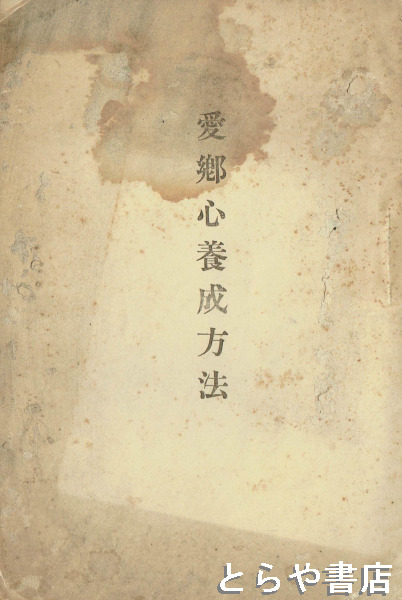 愛鄉心養成方法
とらや書店